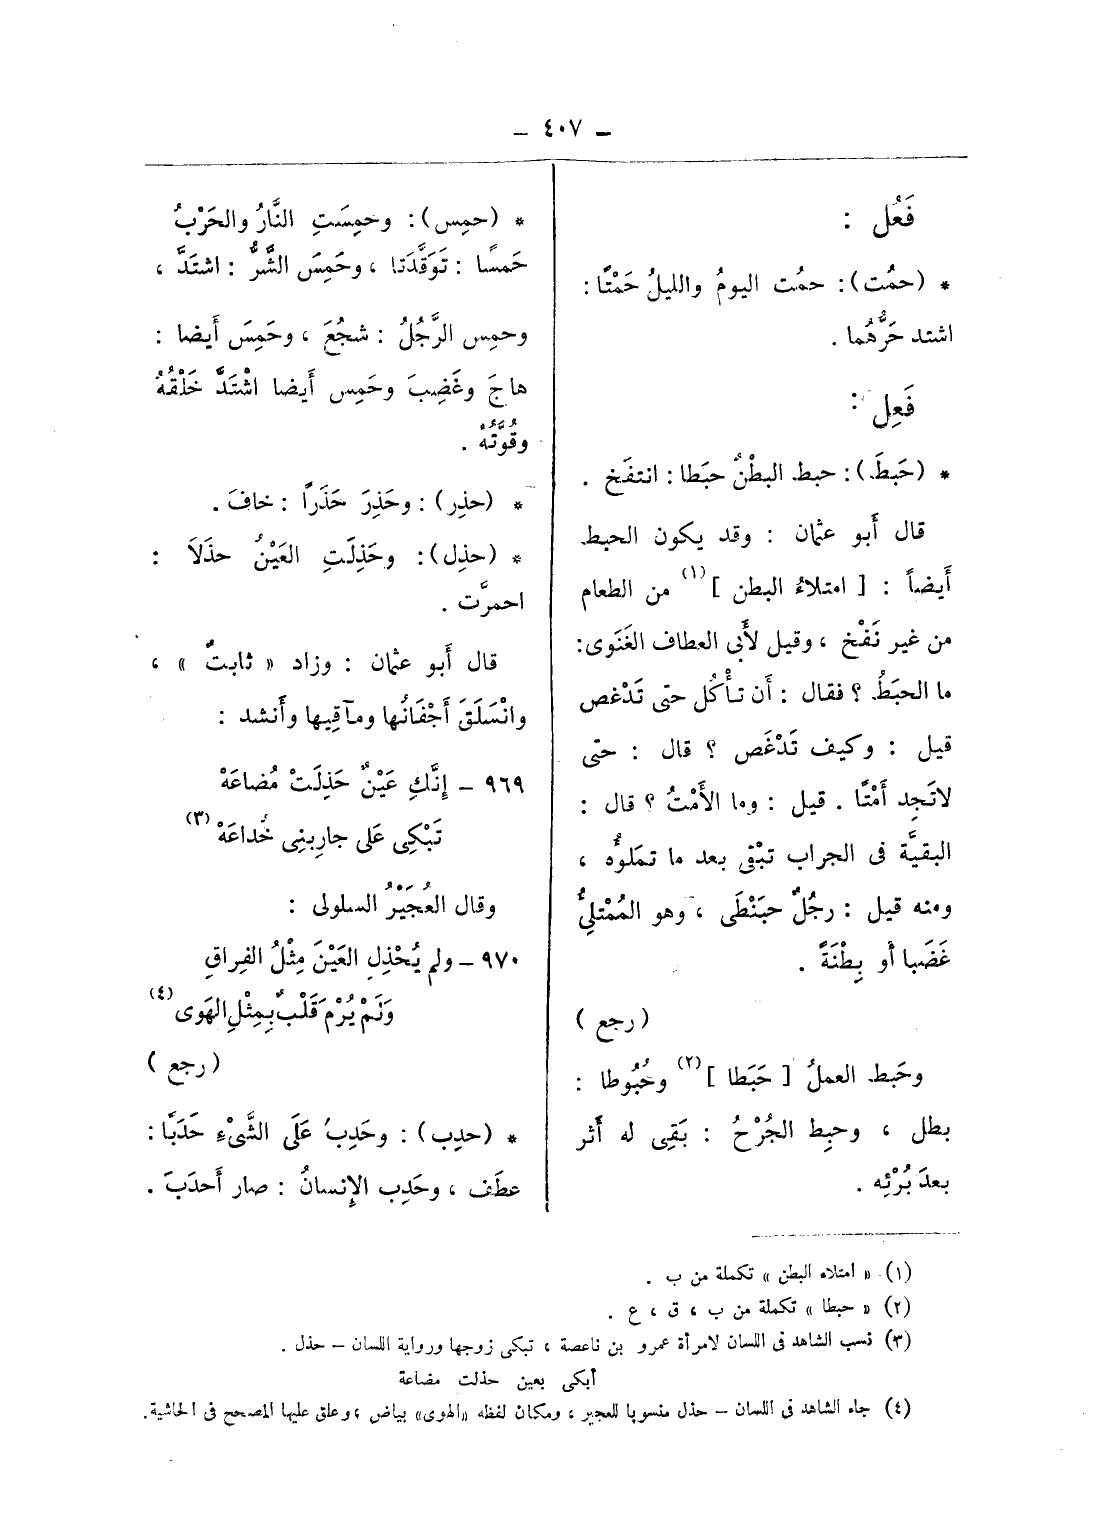 — ٤٠٧ —
فَعُل :
* (حمُت): حمُت اليومُ والليلُ حَمْتًا :
اشتد حَرُّهُما .
فَعِل :
* (حَبِطَ): حبط البطْنُ حبَطا : انتفَخ .
قال أَبو عثمان : وقد يكون الحبط
أَيضاً : [ امتلاءُ البطن ](١) من الطعام
من غير نَفْخ ، وقيل لأَبى العطاف الغَنَوى:
ما الحبَطُ ؟ فقال : أَن تأْكُل حتى تَدْغص
قيل : وكيف تَدْغَص ؟ قال : حتى
لاتَجِد أَمْتًا . قيل : وما الأَمْتُ ؟ قال :
البقيَّة فى الجراب تبْقى بعد ما تملوُّه ،
ومنه قيل : رجُلٌ حبَنْطَى ، وهو المُمْتلِئُ
غَضَبا أَو بِطْنَةً .
( رجع )
وحَبط العملُ [ حَبَطا ](٢) وحُبُوطا :
بطل ، وحبِط الجُرْحُ : بَقِى له أَثر
بعدَ بُرْئِه .
* (حمِس): وحمِسَتِ النَّارُ والحَرْبُ
حَمسًا : تَوَقَّدَتا ، وحَمِسَ الشَّرُّ : اشتَدَّ ،
وحمِس الرَّجُلُ : شجُعَ ، وحَمِسَ أَيضا :
هاجَ وغَضِبَ وحَمِس أَيضا اشْتَدَّ خَلْقُهُ
وقُوَّتُهُ .
* (حذِر) : وحَذِرَ حَذَراً : خافَ .
* (حذِل): وحَذِلَتِ العَيْنُ حذَلاَ :
احمرَّت .
قال أَبو عثمان : وزاد « ثابتٌ » ،
وانْسَلَقَ أَجْفَانُها ومآقِيها وأَنشد :
٩٦٩ – إِنَّكِ عَيْنٌ حَذِلَتْ مُضاعَهْ
تَبْكِى عَلى جارِبنِى خُداعَهْ (٣)
وقال العُجَيْرُ السلولى :
٩٧٠ – ولم يُحْذِلِ العَيْنَ مِثْلُ الفِراقِ
وَلَمْ يُرْمَ قَلْبٌ بِمِثْلِ الهَوى (٤)
( رجع )
* (حدِب) : وحَدِبُ عَلَى الشَّىْءِ حَدَبًا :
عطَف ، وحَدِب الإِنسانُ : صار أَحدَبَ .
(١) « امتلاء البطن » تكملة من ب .
(٢) « حبطا » تكملة من ب ، ق ، ع .
(٣) نسب الشاهد فى اللسان لامرأة عمرو بن ناعصة ، تبكى زوجها ورواية اللسان – حذل .
أبكى بعين حذلت مضاعة
(٤) جاء الشاهد فى اللسان – حذل منسوبا للعجير ، ومكان لفظه «الهوى» بياض ، وعلق عليها المصحح فى الحاشية.